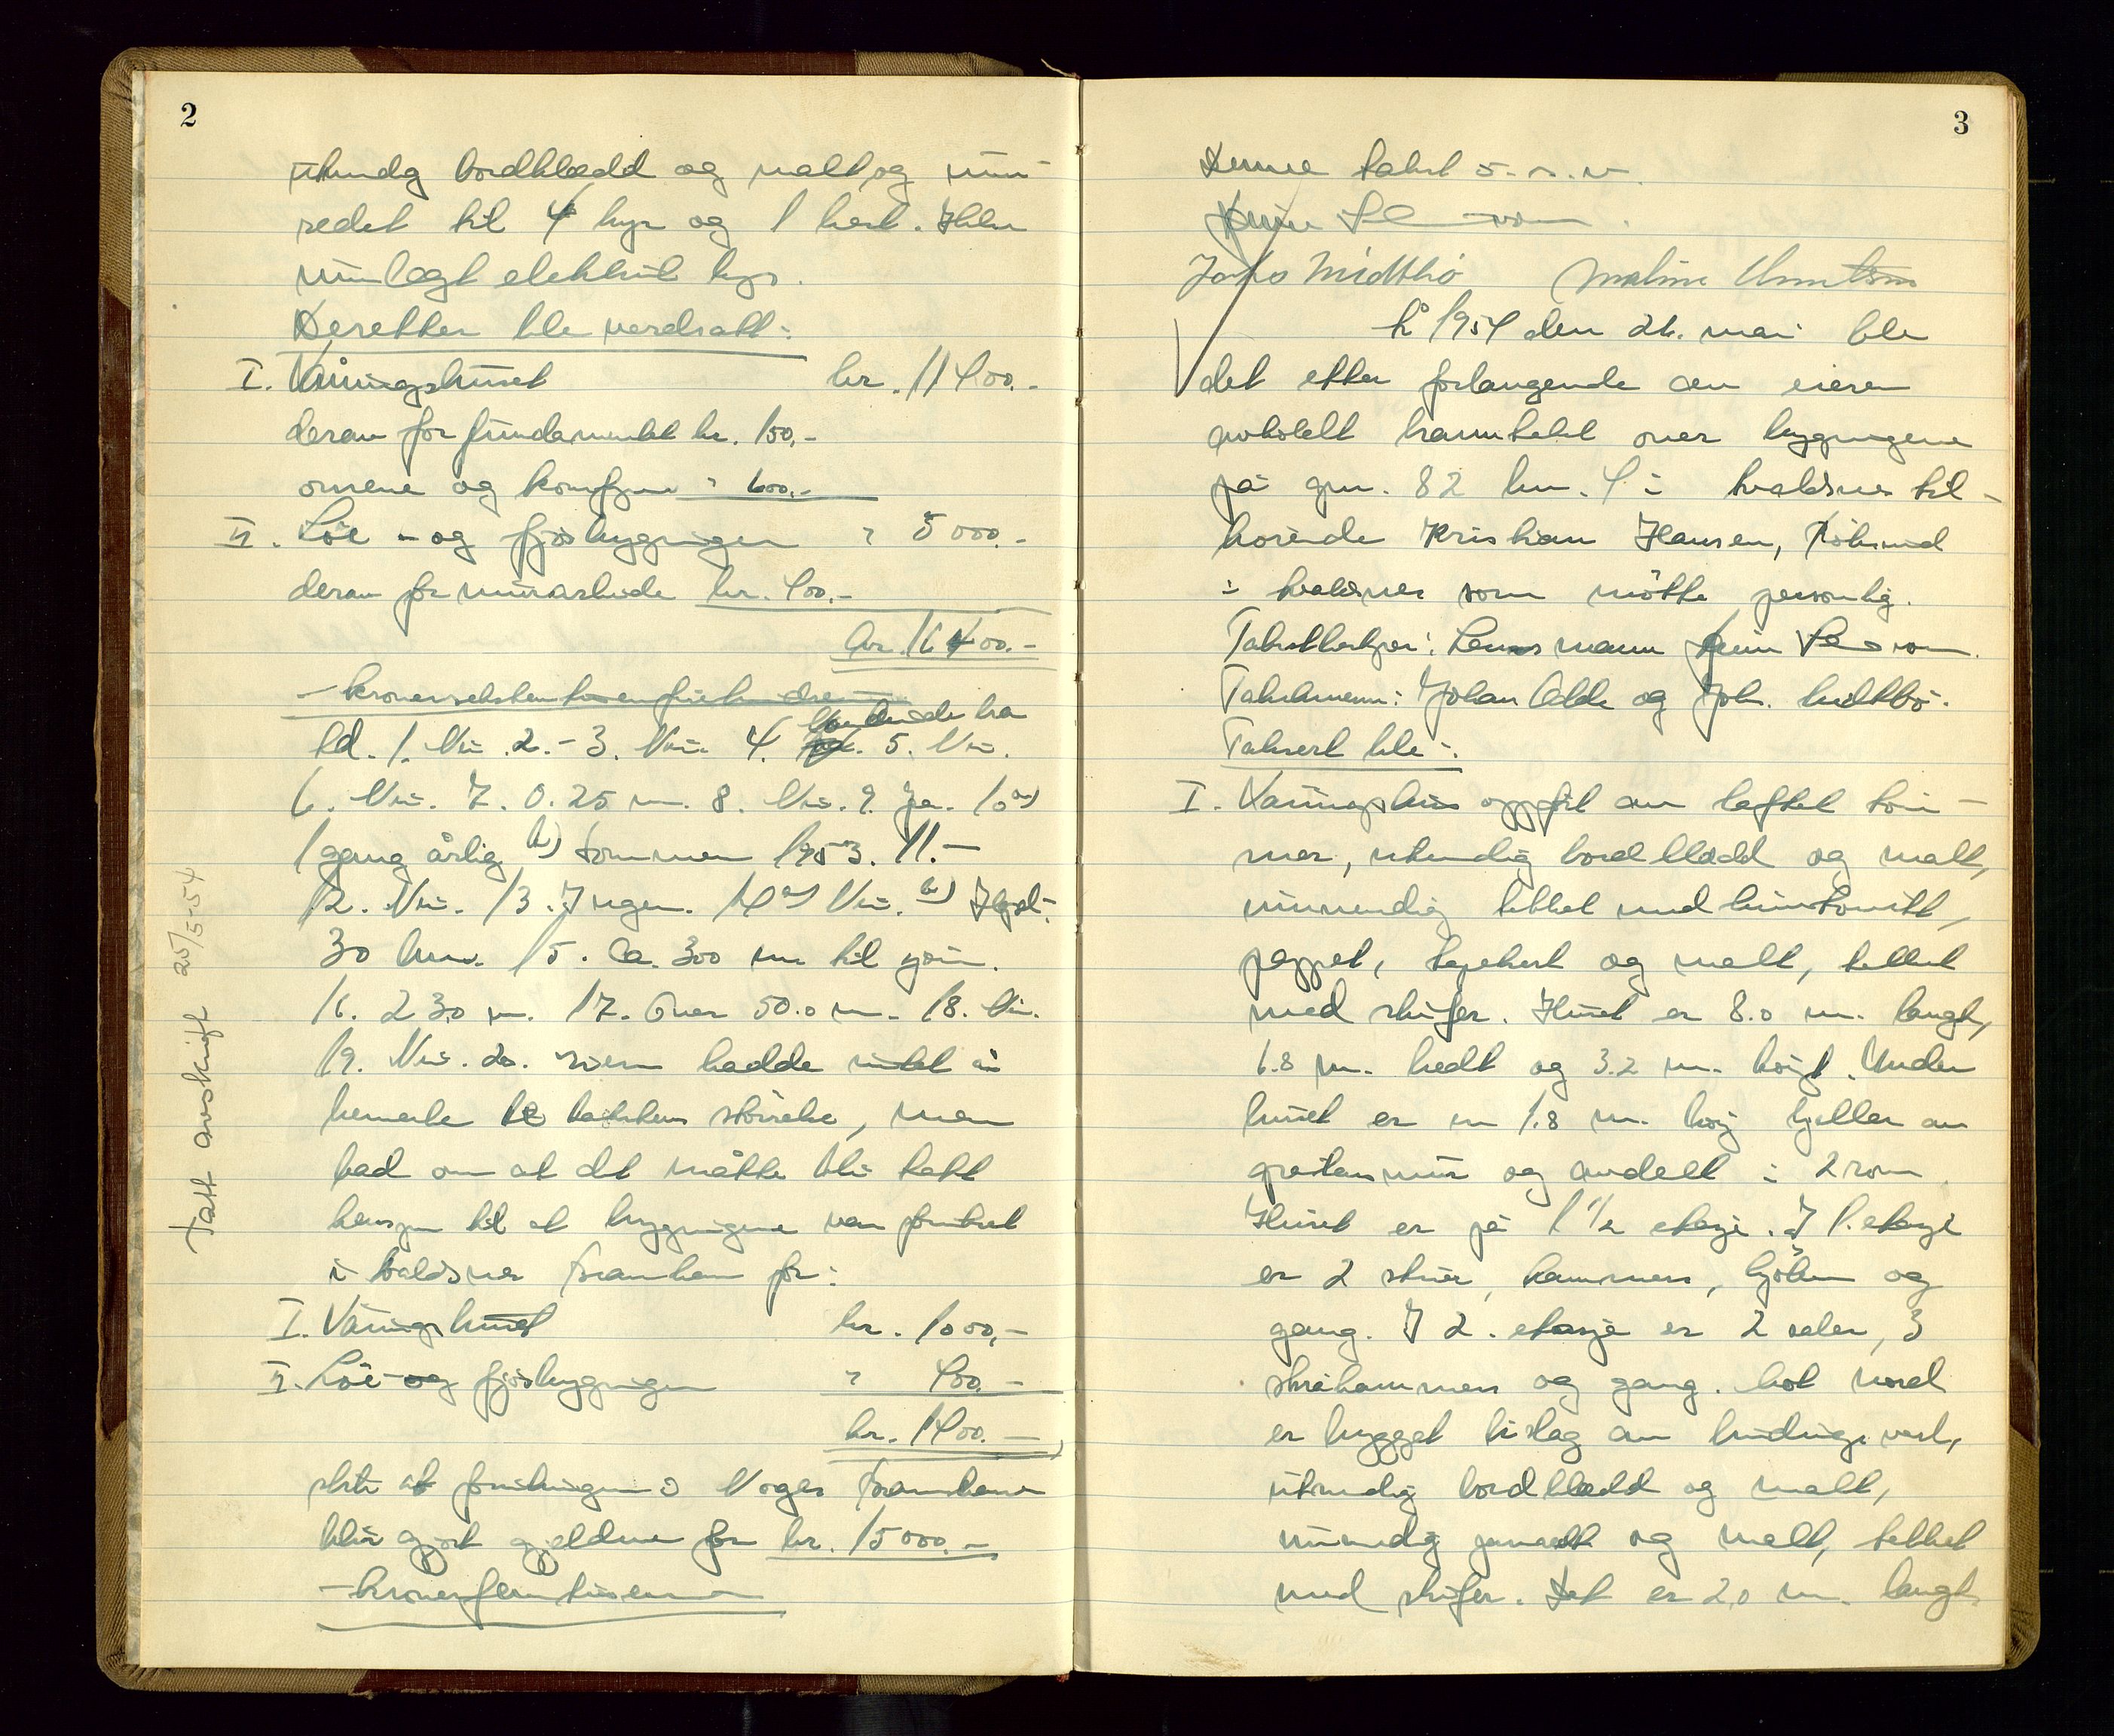 2
utvendig bordkledd og malt, og inn-
redet til 4 kyr og 1 hest. Hele
innlagt elektrisk lys.
Deretter ble verdsatt:
I. Våningshuset kr. 11400.-
derav for fundamentet kr. 150,-
ovnene og komfyren " 600,-
II. Löe- og fjösbygningen " 5000.-
derav for murarbeide kr. 400.-
kr. 16400.-
- kronersekstentusenfirehundre -
td. 1. Nei 2. - 3. Nei 4. 5. Nei.
6. Nei. 7. 0.25 m. 8. Nei. 9. Ja. 10 a)
1 gang årlig b) sommeren 1953. 11. -
12. Nei. 13. Ingen. 14 a) Nei. b)
30 km. 15. Ca. 300 m til
16. 230 m. 17. Over 50.0 m. 18. Nei.
19. Nei. 20. Eieren hadde intet å
bemerke til takstens störrelse, men
bad om at det måtte bli tatt
hensyn til at bygningene var forsikret
i Avaldsnes Brannkasse for:
I. Våningshuset kr. 1000,-
II. Löe- og fjösbygningen " 400.-
kr. 1400.-
slik at forsikringen i Norges Brannkasse
blir gjort gjeldende for kr. 15000.-
- kronerfemtentusen -
Tatt avskrift 25/5-54
3
Denne takst s. n. v.
John Midtbö Malene Knutsen
År 1954 den 26. mai ble
det etter forlangende av eieren
avholdt branntakst over bygningene
på gnr. 82 bnr. 4 i Avaldsnes til-
hörende Kristian Hansen,
i Avaldsnes som mötte personlig.
Takstbestyrer: Lensmann
Takstmenn: Johan Odde og Joh. Midtbö.
Taksert ble:
I. Våningshus oppfört av laftet töm-
mer, utvendig bordkledd og malt,
innvendig tettet med huntonitt,
pappet, tapetsert og malt, tekket
med skifer. Huset er 8.0 m. langt,
6.8 m. bredt og 3.2 m. höyt. Under
huset er en 1.8 m. höy kjeller av
gråstensmur og avdelt i 2 rom.
Huset er på 1 1/2 etasje. I 1. etasje
er 2 stuer, kammers, kjöken og
gang. I 2. etasje er 2 saler, 3
skråkammers og gang. Mot nord
er bygget bislag av bindingsverk,
utvendig bordkledd og malt,
innvendig panelt og malt, tekket
med skifer. Det er 2.0 m. langt,